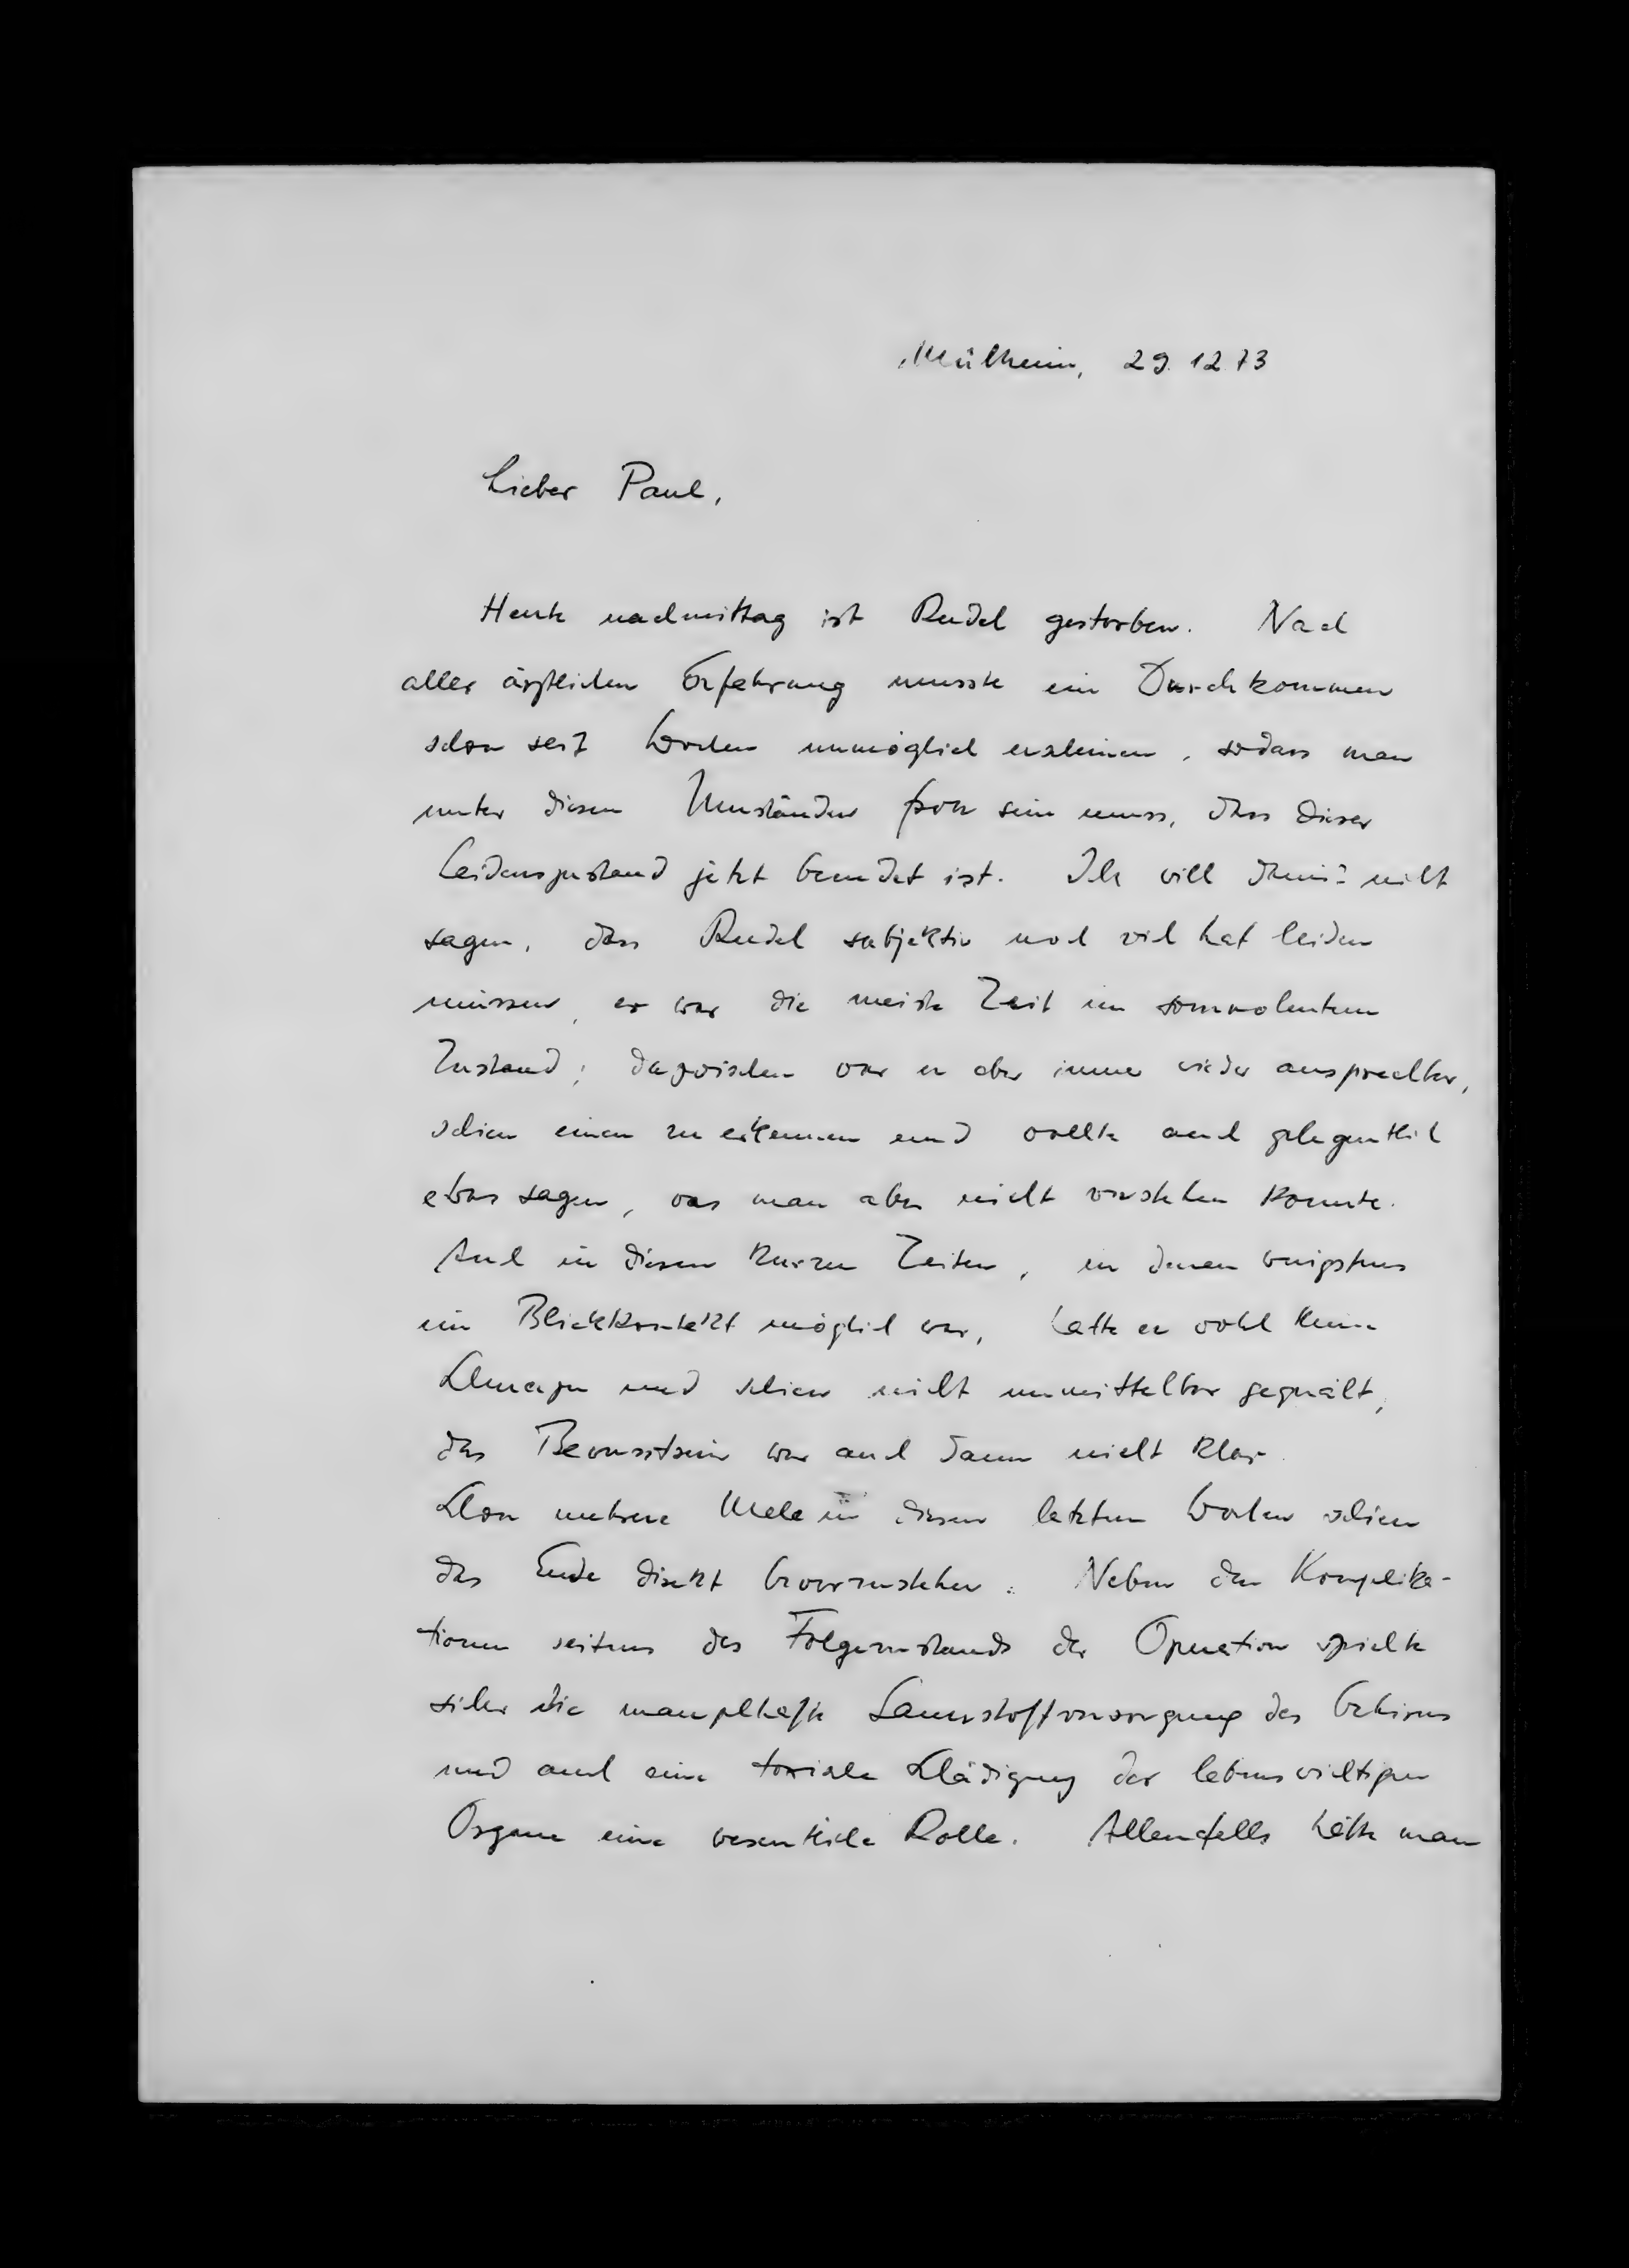 Mülheim, 29.12.73
Lieber Paul,
Heute nachmittag ist Rudel gestorben. Nach
aller ärztlichen Erfahrung musste ein Durchkommen
schon seit Wochen unmöglich erscheinen, sodass man
unter diesen Umständen froh sein muss, dass dieser
Leidenszustand jetzt beendet ist. Ich will damit nicht
sagen, dass Rudel subjektiv noch viel hat leiden
müssen, er war die meiste Zeit im somnolentem
Zustand; dazwischen war er aber immer wieder ansprechbar,
schien einen zu erkennen und wollte auch gelegentlich
etwas sagen, was man aber nicht verstehen konnte.
Auch in diesen kurzen Zeiten, in denen wenigstens
ein Blickkontakt möglich war, hatte er wohl keine
Schmerzen und schien nicht unmittelbar gequält,
das Bewusstsein war auch dann nicht klar.
Schon mehrere Male in diesen letzten Wochen schien
das Ende direkt bevorzustehen. Neben den Komplika-
tionen seitens des Folgezustands der Operation spielte
sicher die mangelhafte Sauerstoffversorgung des Gehirns
und auch eine toxische Schädigung der lebenswichtigen
Organe eine wesentliche Rolle. Allenfalls hätte man